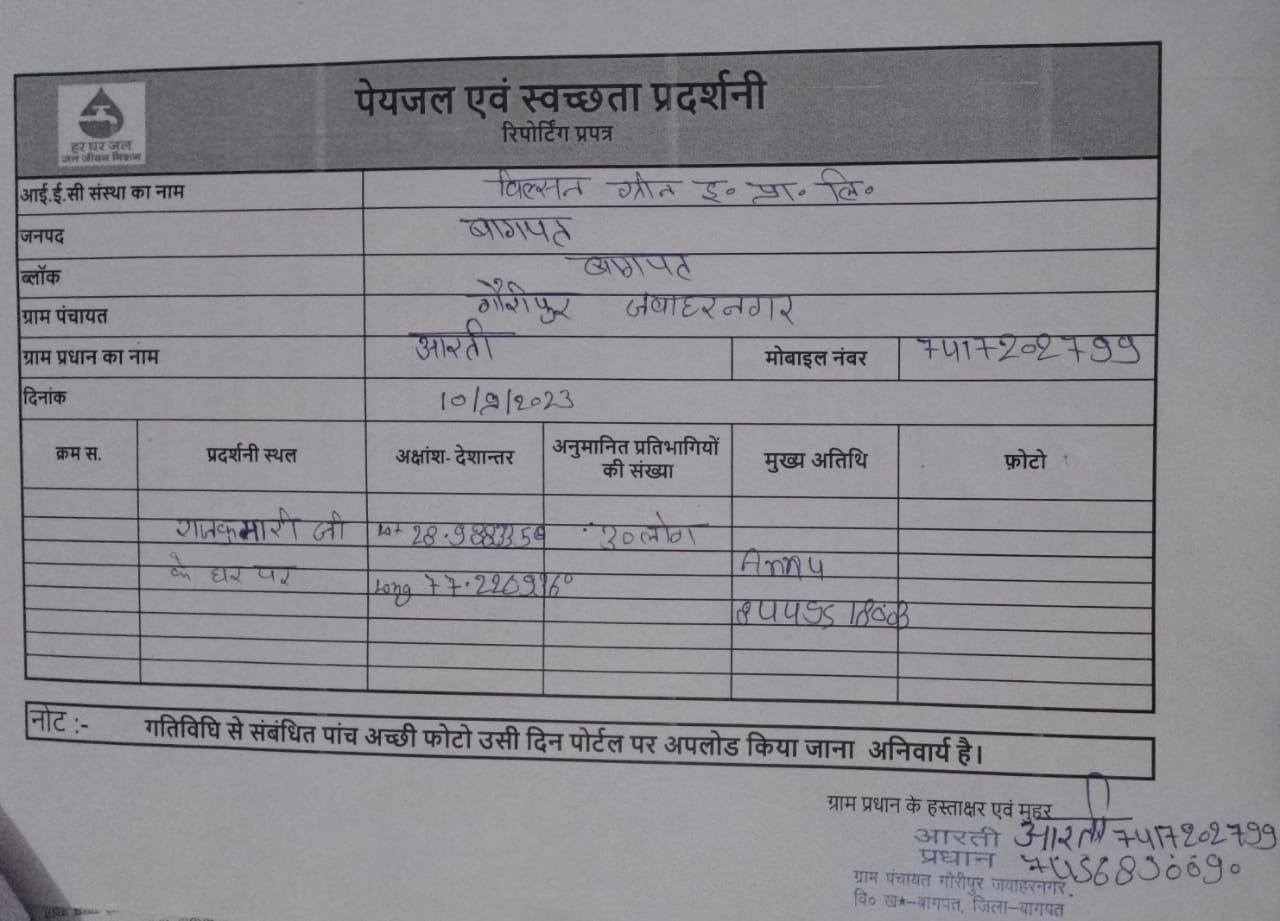 पेयजल एवं स्वच्छता प्रदर्शनी
रिपोर्टिंग प्रपत्र
हर घर जल
जल जीवन मिशन
आई.ई.सी संस्था का नाम विल्सन ग्रीन इ० प्रा० लि०
जनपद बागपत
ब्लॉक बागपत
ग्राम पंचायत गौरीपुर जवाहरनगर
ग्राम प्रधान का नाम आरती मोबाइल नंबर 7417202799
दिनांक 10/9/2023
क्रम स. प्रदर्शनी स्थल अक्षांश- देशान्तर अनुमानित प्रतिभागियों की संख्या मुख्य अतिथि फ़ोटो
राजकुमारी जी Lat 30 लोग
के घर पर Long Annu
नोट :- गतिविधि से संबंधित पांच अच्छी फोटो उसी दिन पोर्टल पर अपलोड किया जाना अनिवार्य है।
ग्राम प्रधान के हस्ताक्षर एवं मुहर
आरती आरती 7417202799
प्रधान
ग्राम पंचायत गौरीपुर जवाहरनगर
वि० ख०-बागपत, जिला-बागपत